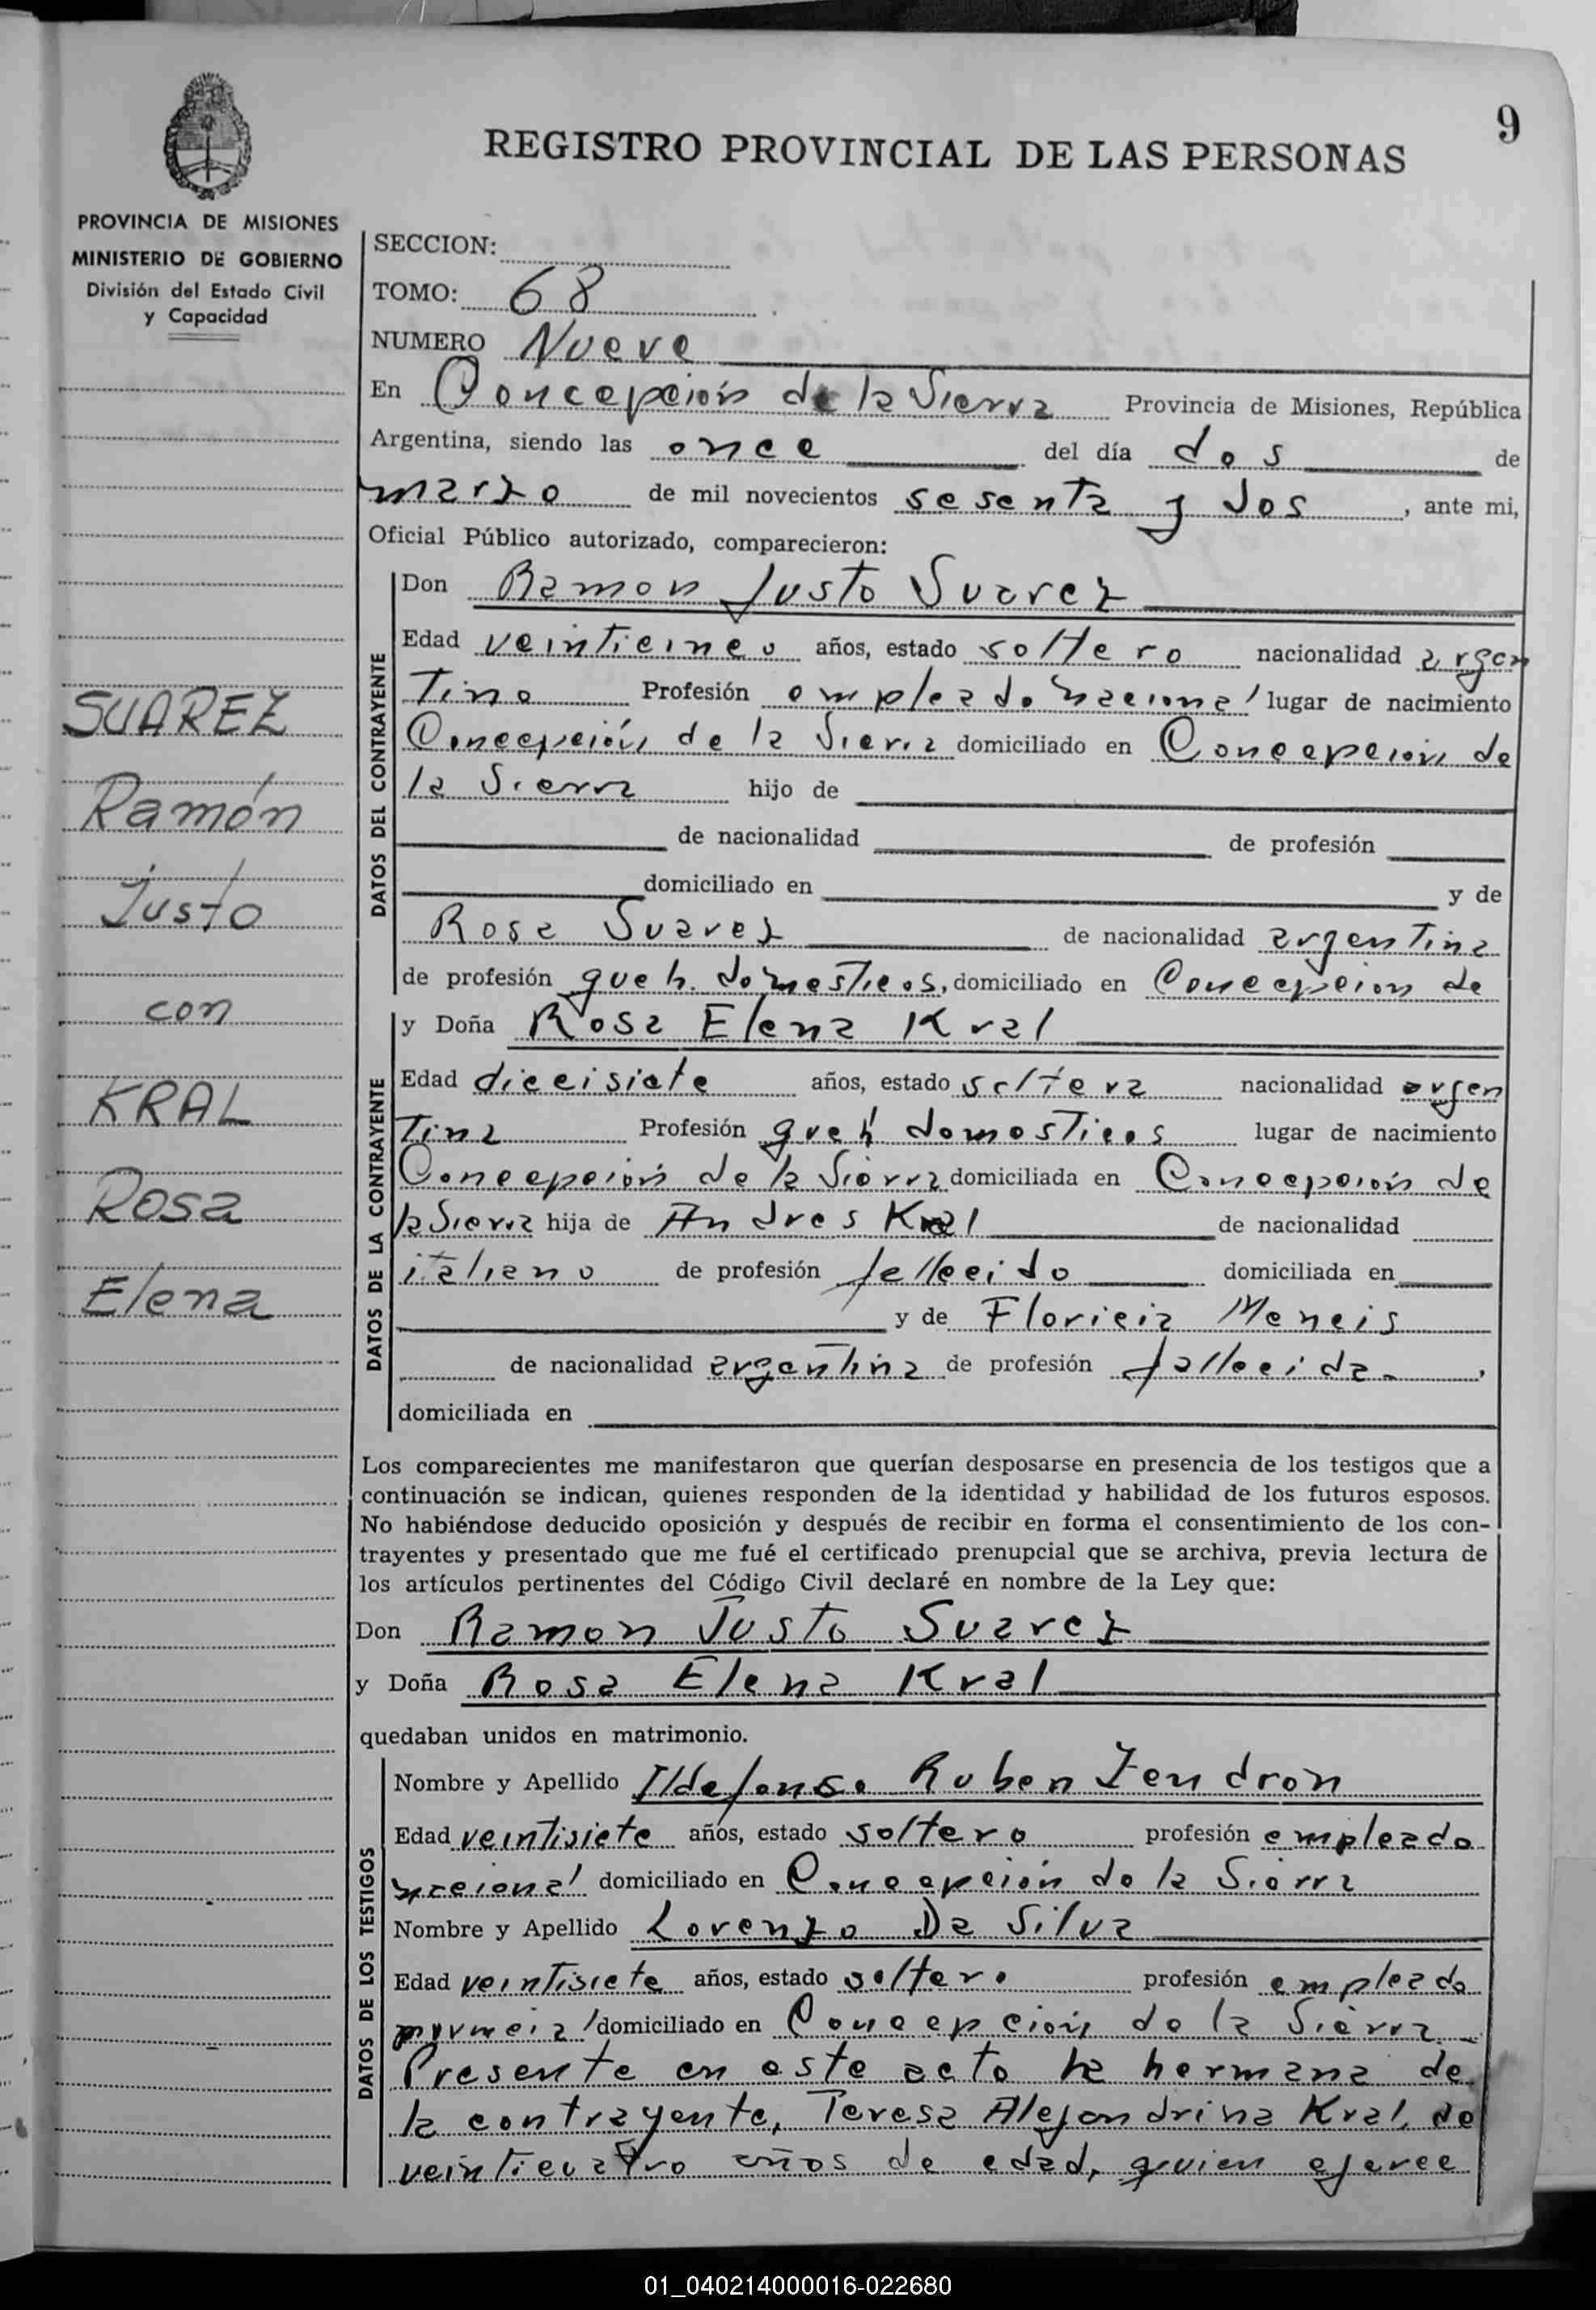 9
REGISTRO PROVINCIAL DE LAS PERSONAS
PROVINCIA DE MISIONES
MINISTERIO DE GOBIERNO
División del Estado Civil
y Capacidad
SUAREZ
Ramón
Justo
con
KRAL
Rosa
Elena
SECCION:
TOMO: 68
NUMERO Nueve
En Concepción de la Sierra Provincia de Misiones, República
Argentina, siendo las once del día dos de
marzo de mil novecientos sesenta y dos, ante mi,
Oficial Público autorizado, comparecieron:
DATOS DEL CONTRAYENTE
Don Ramon Justo Suarez
Edad veinticinco años, estado soltero nacionalidad argen
tino Profesión empleado nacional lugar de nacimiento
Concepción de la Sierra domiciliado en Concepción de
la Sierra hijo de
de nacionalidad de profesión
domiciliado en y de
Rosa Suarez de nacionalidad argentina
de profesión queh. domesticos, domiciliado en Concepcion de
DATOS DE LA CONTRAYENTE
y Doña Rosa Elena Kral
Edad diecisiete años, estado soltera nacionalidad argen
tina Profesión queh domesticos lugar de nacimiento
Concepción de la Sierra domiciliada en Concepción de
la Sierra hija de Andres Kral de nacionalidad
italiano de profesión fallecido domiciliada en
y de Floricia Meneis
de nacionalidad argentina de profesión fallecida.,
domiciliada en
Los comparecientes me manifestaron que querían desposarse en presencia de los testigos que a
continuación se indican, quienes responden de la identidad y habilidad de los futuros esposos.
No habiéndose deducido oposición y después de recibir en forma el consentimiento de los con-
trayentes y presentado que me fué el certificado prenupcial que se archiva, previa lectura de
los artículos pertinentes del Código Civil declaré en nombre de la Ley que:
Don Ramon Justo Suarez
y Doña Rosa Elena Kral
quedaban unidos en matrimonio.
DATOS DE LOS TESTIGOS
Nombre y Apellido Ildefonso Ruben Zendron
Edad veintisiete años, estado soltero profesión empleado
nacional domiciliado en Concepción de la Sierra
Nombre y Apellido Lorenzo Da Silva
Edad veintisiete años, estado soltero profesión empleado
domiciliado en Concepción de la Sierra.
Presente en este acto la hermana de
la contrayente, Teresa Alejandrina Kral, de
veinticuatro años de edad, quien ejerce
01_040214000016-022680